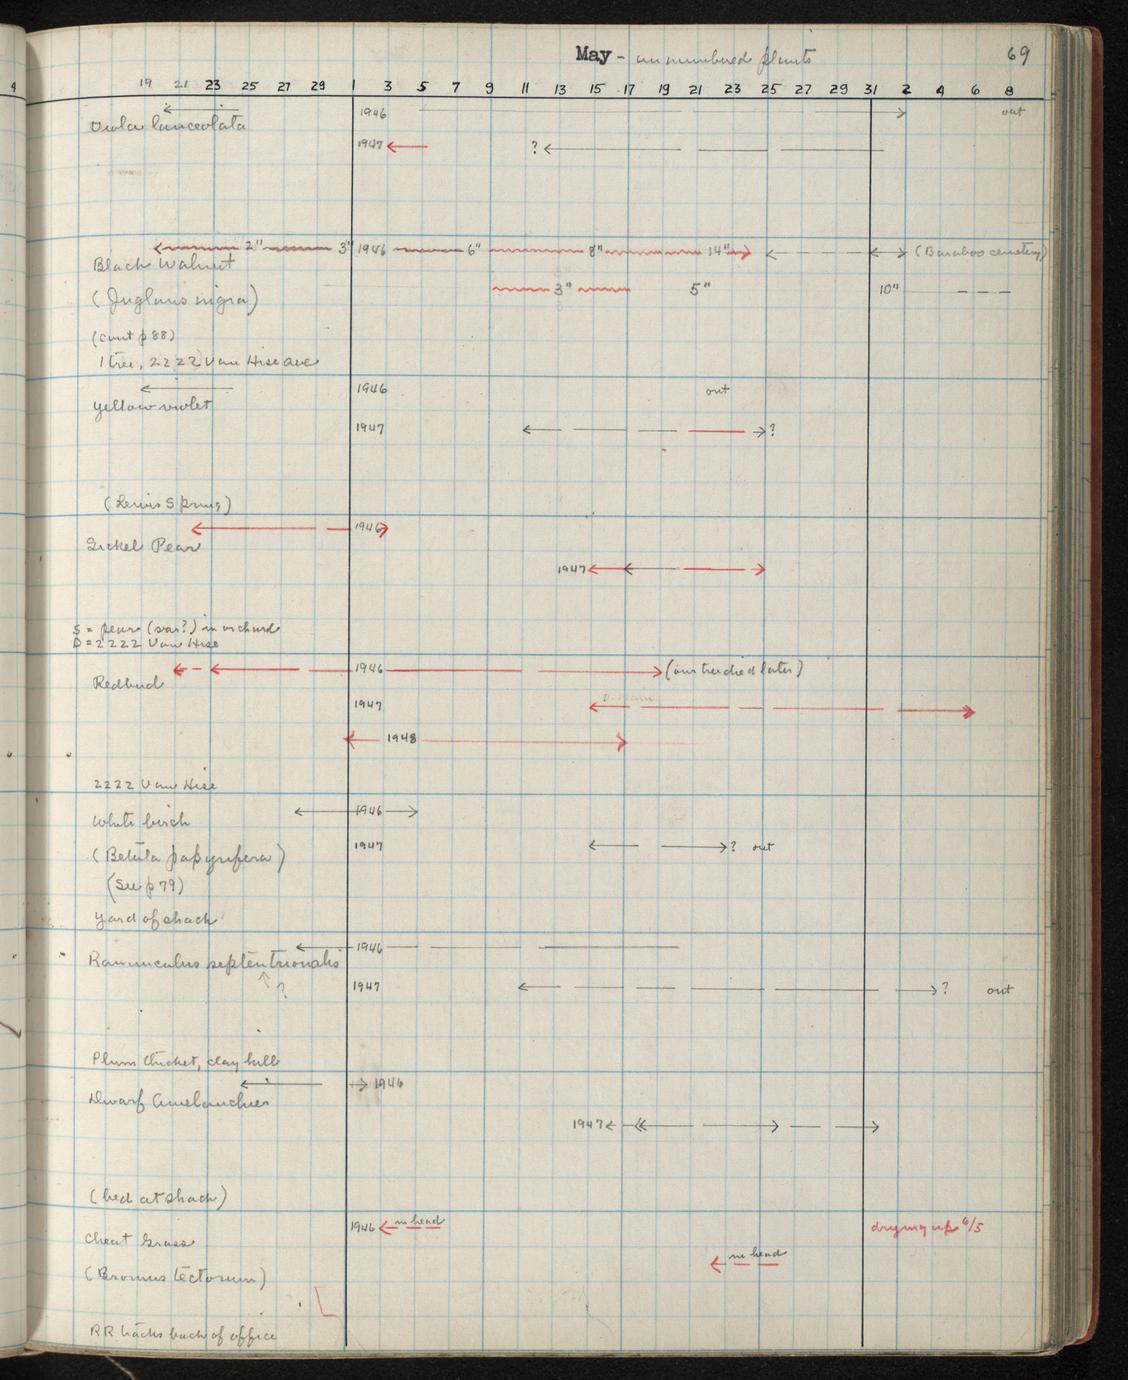 May - unnumbered plants 69
4 19 21 23 25 27 29 1 3 5 7 9 11 13 15 17 19 21 23 25 27 29 31 2 4 6 8
1946 out
Viola lanceolata
1947 ?
2" 3" 1946 6" 8" 14" (Baraboo cemetery)
Black Walnut
(Juglans nigra) 3" 5" 10"
(cont p 88)
1 tree, 2222 Van Hise ave
1946 out
Yellow violet
1947 ?
(Lewis Spring)
1946
Seckel Pear
1947
S = pear (var?) in orchard
D = 2222 Van Hise
1946 (our tree died later)
Redbud
1947
1948
2222 Van Hise
1946
White birch
1947 ? out
(Betula papyrifera)
(See p 79)
Yard of shack
1946
Ranunculus septentrionalis
?
1947 ? out
Plum thicket, clay hill
1946
Dwarf Amelanchier
1947
(bed at shack)
1946 in head drying up 6/5
Cheat Grass
in head
(Bromus tectorum)
RR tracks back of office